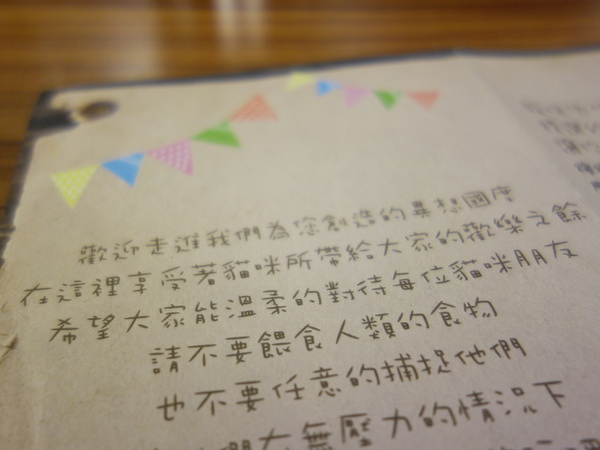 歡迎走進我們為您創造的異想國度
在這裡享受著貓咪所帶給大家的歡樂之餘
希望大家能溫柔的對待每位貓咪朋友
請不要餵食人類的食物
也不要任意的捕捉他們
們大無壓力的情況下